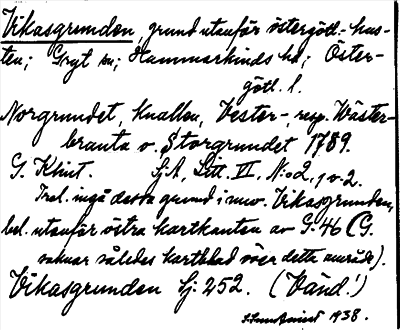 Vikasgrunden, grund utanför östergötl. kus-
ten; Gryt sn; Hammarkinds hd; Öster-
götl. l.
Norgrundet, Knallen, Vester-, resp. Wäster-
branta o. Storgrundet 1789.
G. Klint. SjA, Litt. VI, N:o 2, 1 o. 2.
Trol. ingå dessa grund i nuv. Vikasgrunden,
bel. utanför östra kartkanten av G. 46 (G.
saknar således kartblad över detta område).
Vikasgrunden Sj. 252. (Vänd!)
1938.